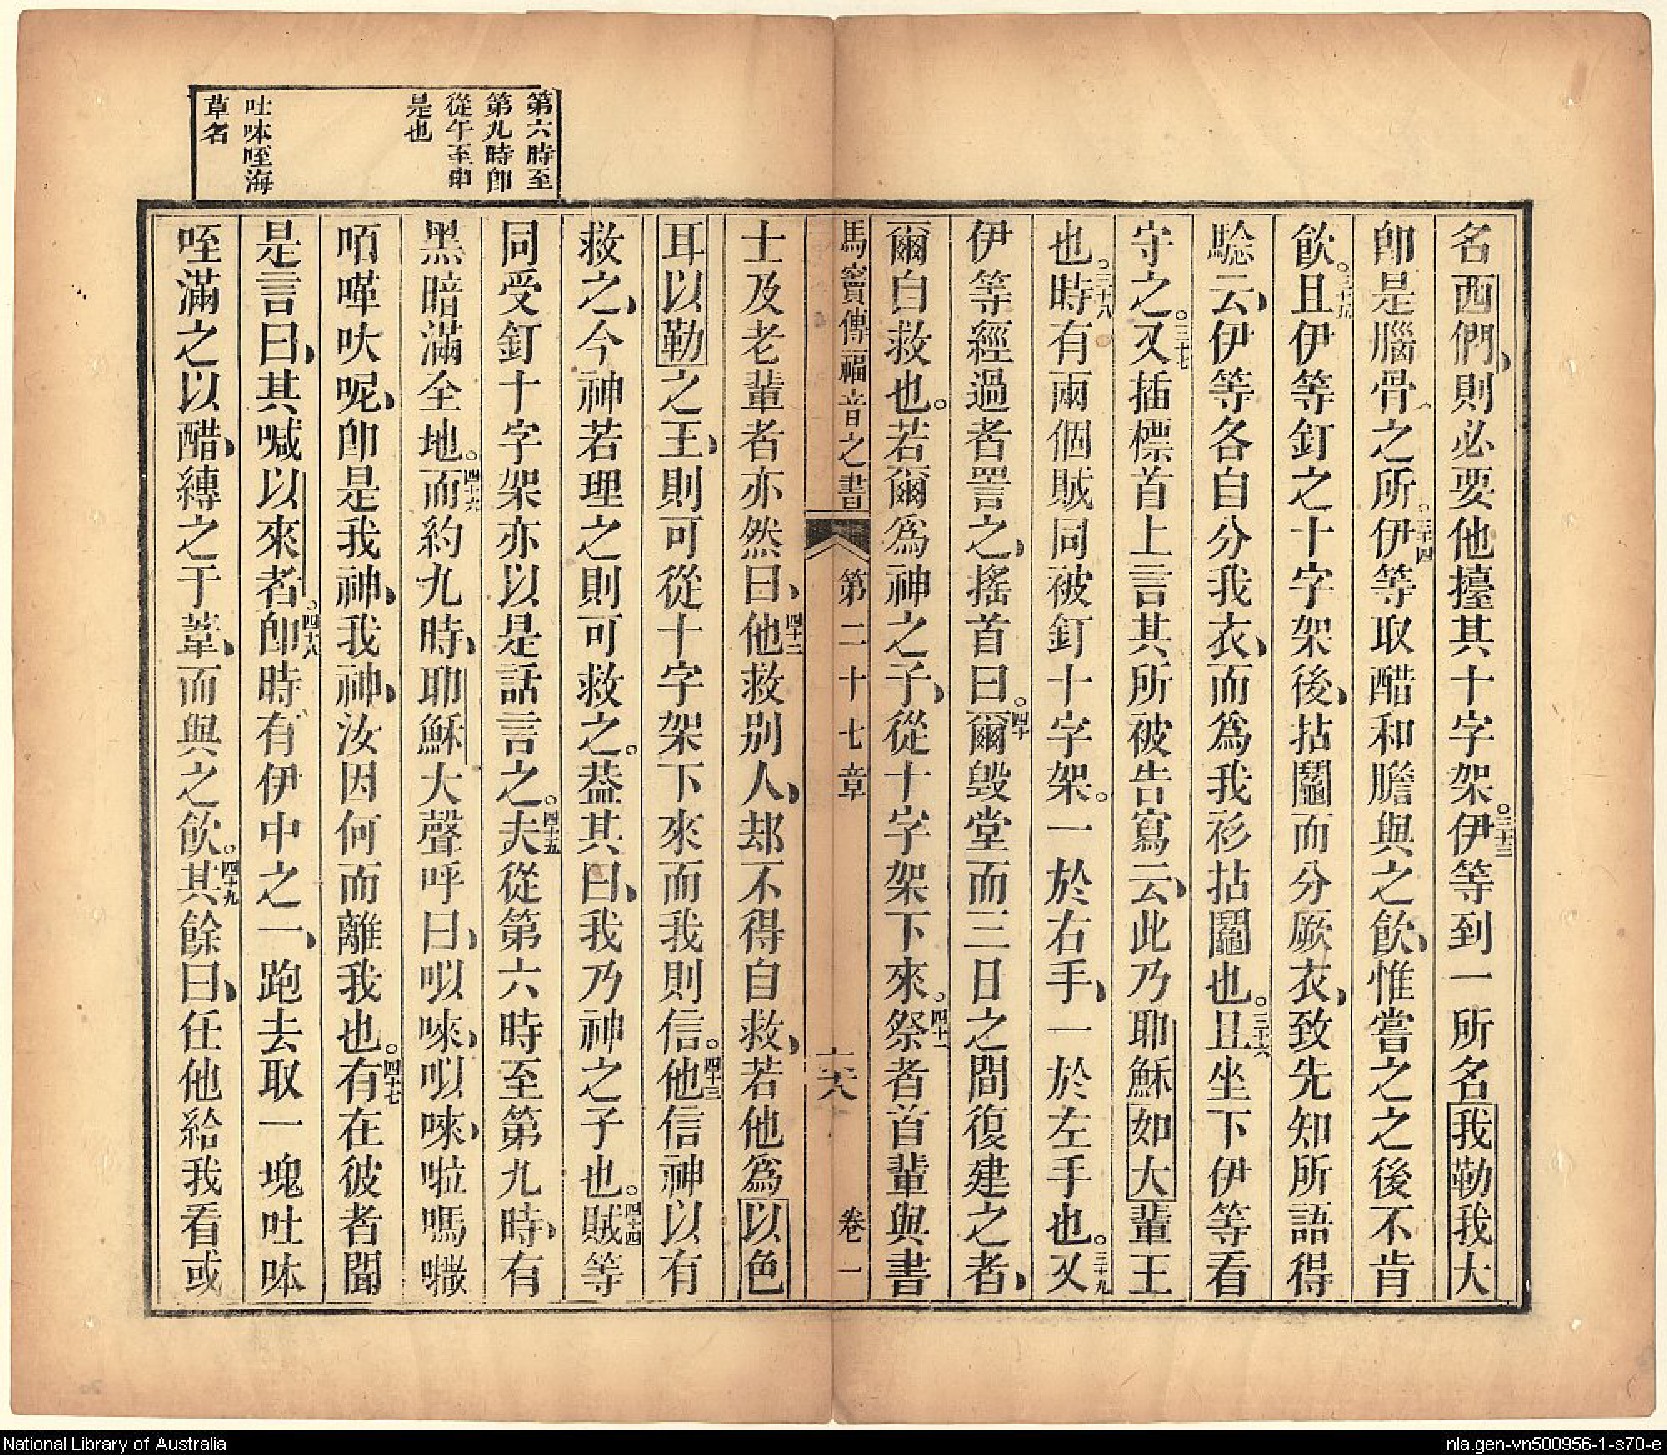 名西們、則必要他擡其十字架。三十三伊等到一所名我勒我大
卽是腦骨之所。三十四伊等取醋和膽與之飲、惟嘗之之後不肯
飲。三十五且伊等釘之十字架後、拈鬮而分厥衣、致先知所語得
騐云、伊等各自分我衣、而爲我衫拈鬮也。三十六且坐下伊等看
守之。三十七又插標首上言其所被告寫云、此乃耶穌如大輩王
也。三十八時有兩個賊同被釘十字架。一於右手、一於左手也。三十九又
伊等經過者詈之、搖首曰。四十爾毀堂而三日之間復建之者、
爾自救也。若爾爲神之子、從十字架下來。四十一祭者首輩與書
馬竇傳福音之書 第二十七章 卷一
士及老輩者亦然曰、四十二他救別人、却不得自救、若他爲以色
耳以勒之王、則可從十字架下來而我則信。四十三他信神以有
救之、今神若理之則可救之。葢其曰、我乃神之子也。四十四賊等
同受釘十字架亦以是話言之。四十五夫從第六時至第九時、有
黑暗滿全地。四十六而約九時、耶穌大聲呼曰、㕥唻、㕥唻、啦嗎㘔
咟嘩吠呢、卽是我神、我神、汝因何而離我也。四十七有在彼者聞
是言曰、其喊以來者。四十八卽時有伊中之一、跑去取一塊吐呠
咥滿之以醋、縛之于葦、而與之飲。四十九其餘曰、任他給我看或
第六時至
第九時卽
從午至申
是也
吐呠咥海
草名
National Library of Australia
nla.gen-vn500956-1-s70-e